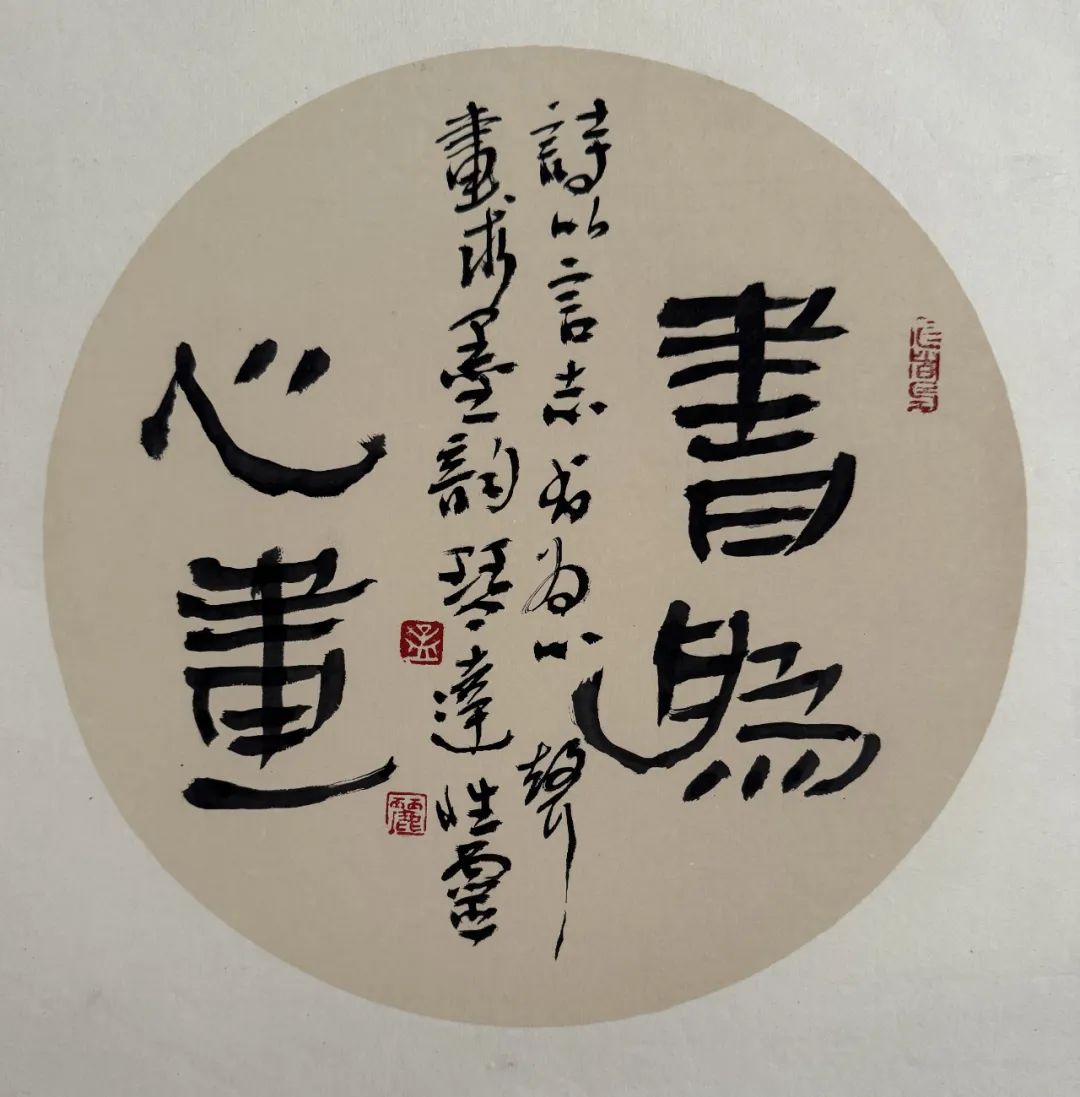 書為
詩以言志書為心聲
畫求墨韻琴達性靈
心畫
孟
麗